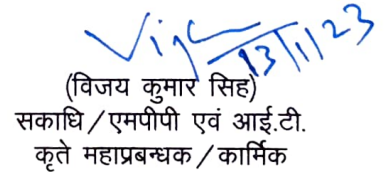 Vij 13/11/23
(विजय कुमार सिंह)
सकाधि/एमपीपी एवं आई.टी.
कृते महाप्रबन्धक/कार्मिक